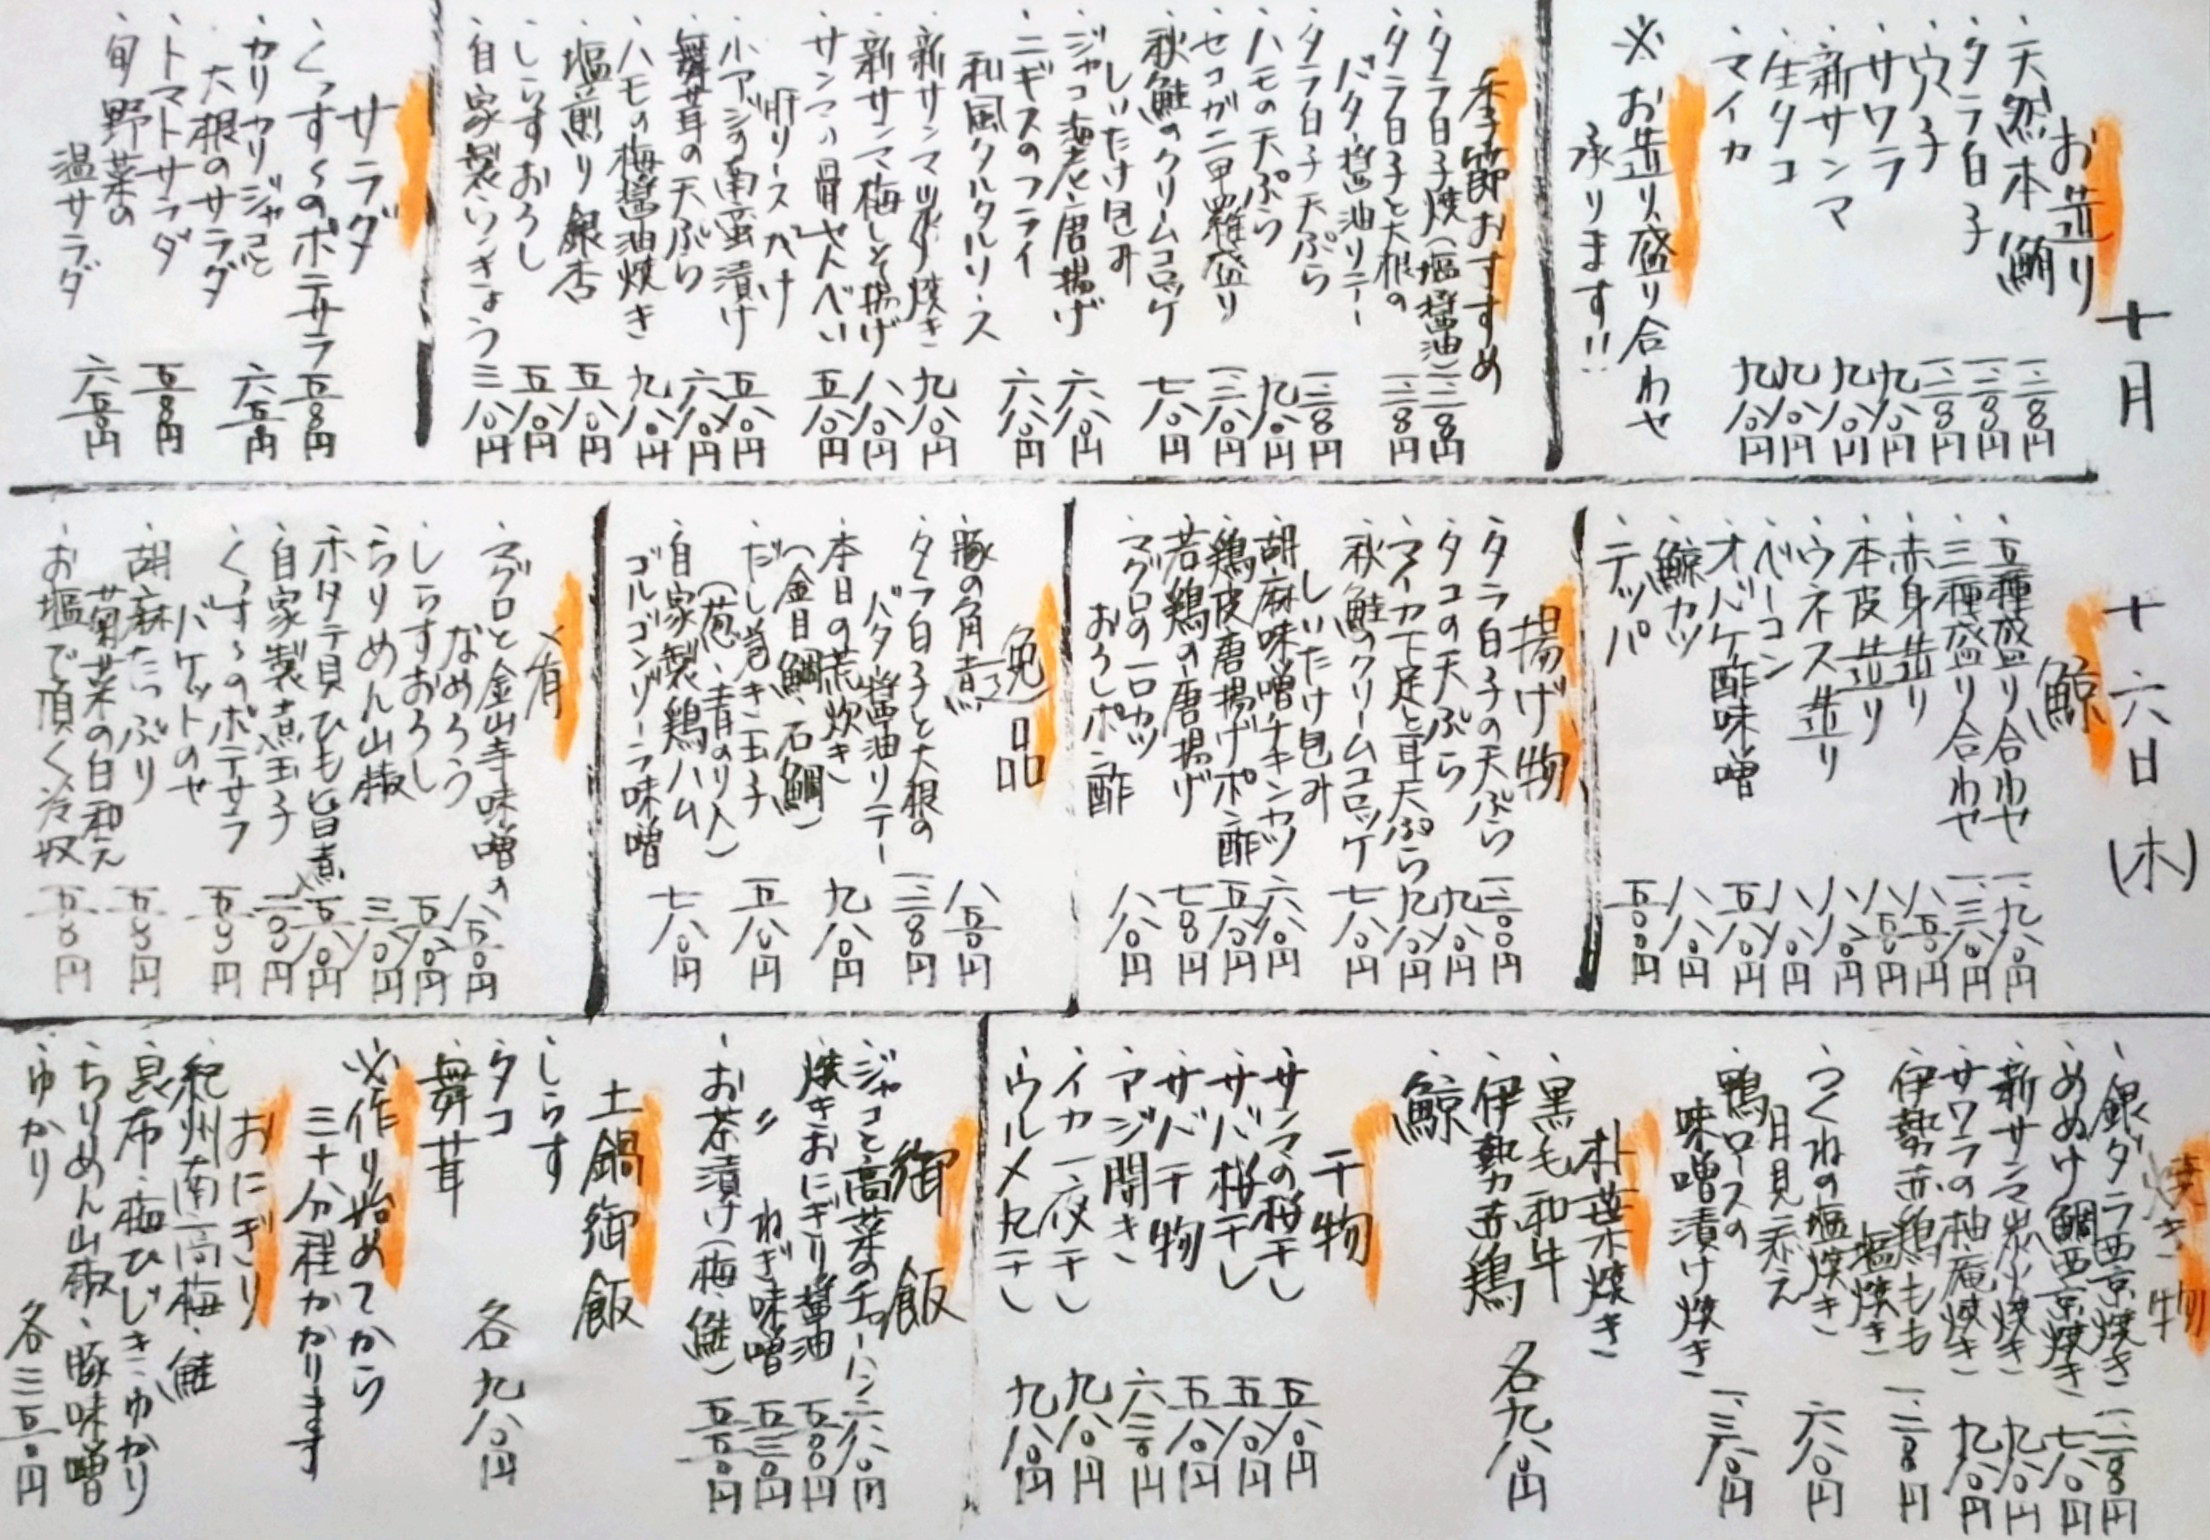 十月
十六日(木)
お造り
・天然本鮪 一二〇〇円
・タラ白子 一二〇〇円
・穴子 一二〇〇円
・サワラ 九八〇円
・新サンマ 九八〇円
・生タコ 九八〇円
・マイカ 九八〇円
※お造り盛り合わせ
承ります!!
季節おすすめ
・タラ白子焼(塩・醤油) 一二〇〇円
・タラ白子と大根の
バター醤油ソテー 一二〇〇円
・タラ白子天ぷら 一二〇〇円
・ハモの天ぷら 九八〇円
・セコガニ甲羅盛り
・秋鮭のクリームコロッケ
しいたけ包み 七八〇円
・ジャコ 唐揚げ 六八〇円
・ニギスのフライ
和風タルタルソース 六八〇円
・新サンマ炭火焼き 九八〇円
・新サンマ梅しそ揚げ 八八〇円
・サンマの骨せんべい
肝ソースがけ 五八〇円
・小アジの南蛮漬け 五八〇円
・舞茸の天ぷら 六八〇円
・ハモの梅醤油焼き 九八〇円
・塩煎り銀杏 五八〇円
・しらすおろし 五八〇円
・自家製らっきょう 三八〇円
サラダ
・くっす〜のポテサラ 五〇〇円
・カリカリジャコと
大根のサラダ 六五〇円
・トマトサラダ 五〇〇円
・旬野菜の
温サラダ 六五〇円
鯨
・五種盛り合わせ 一、九八〇円
・三種盛り合わせ 一、三八〇円
・赤身造り 八五〇円
・本皮造り 八五〇円
・ウネス造り 八八〇円
・ベーコン 八八〇円
・オバケ酢味噌 五八〇円
・鯨カツ 八八〇円
・テッパ 五〇〇円
揚げ物
・タラ白子の天ぷら 一二〇〇円
・タコの天ぷら 九八〇円
・マイカ下足と耳天ぷら 九八〇円
・秋鮭のクリームコロッケ
しいたけ包み 七八〇円
・胡麻味噌チキンカツ 六八〇円
・鶏皮唐揚げポン酢 五八〇円
・若鶏の唐揚げ 七〇〇円
・マグロの一口カツ
おろしポン酢 八八〇円
逸品
・豚の角煮 八五〇円
・タラ白子と大根の
バター醤油ソテー 一二〇〇円
・本日の荒炊き
(金目鯛、石鯛) 九八〇円
・だし巻き玉子
(葱、青のり入) 五八〇円
・自家製鶏ハム
ゴルゴンゾーラ味噌 七八〇円
〆肴
・マグロと金山寺味噌の
なめろう 八五〇円
・しらすおろし 五八〇円
・ちりめん山椒 三八〇円
・ホタテ貝ひも旨煮 五八〇円
・自家製煮玉子
・くっす〜のポテサラ
バケットのせ 五五〇円
・胡麻たっぷり
菊菜の白和え
・お塩で頂く冷奴
焼き物
・銀ダラ西京焼き 一二〇〇円
・めぬけ鯛西京焼き 七八〇円
・新サンマ炭火焼き 九八〇円
・サワラの柚庵焼き 九八〇円
・伊勢赤鶏もも
塩焼き
・つくねの塩焼き
月見添え 六八〇円
・鴨ロースの
味噌漬け焼き 一、三八〇円
朴葉焼き
・黒毛和牛
・伊勢赤鶏
・鯨
各九八〇円
干物
・サンマの桜干し 五八〇円
・サバ桜干し 五八〇円
・サバ干物 五八〇円
・アジ開き 六三〇円
・イカ一夜干し 九八〇円
・ウルメ丸干し 九八〇円
御飯
・ジャコと高菜のチャーハン 六八〇円
・焼きおにぎり醤油 五〇〇円
・〃 ねぎ味噌 五三〇円
・お茶漬け(梅・鮭) 五五〇円
土鍋御飯
・しらす
・タコ
・舞茸
各九八〇円
※作り始めてから
三十分程かかります
おにぎり
・紀州南高梅・鮭
・昆布・梅ひじき・ゆかり
・ちりめん山椒・豚味噌
・ゆかり
各三五〇円